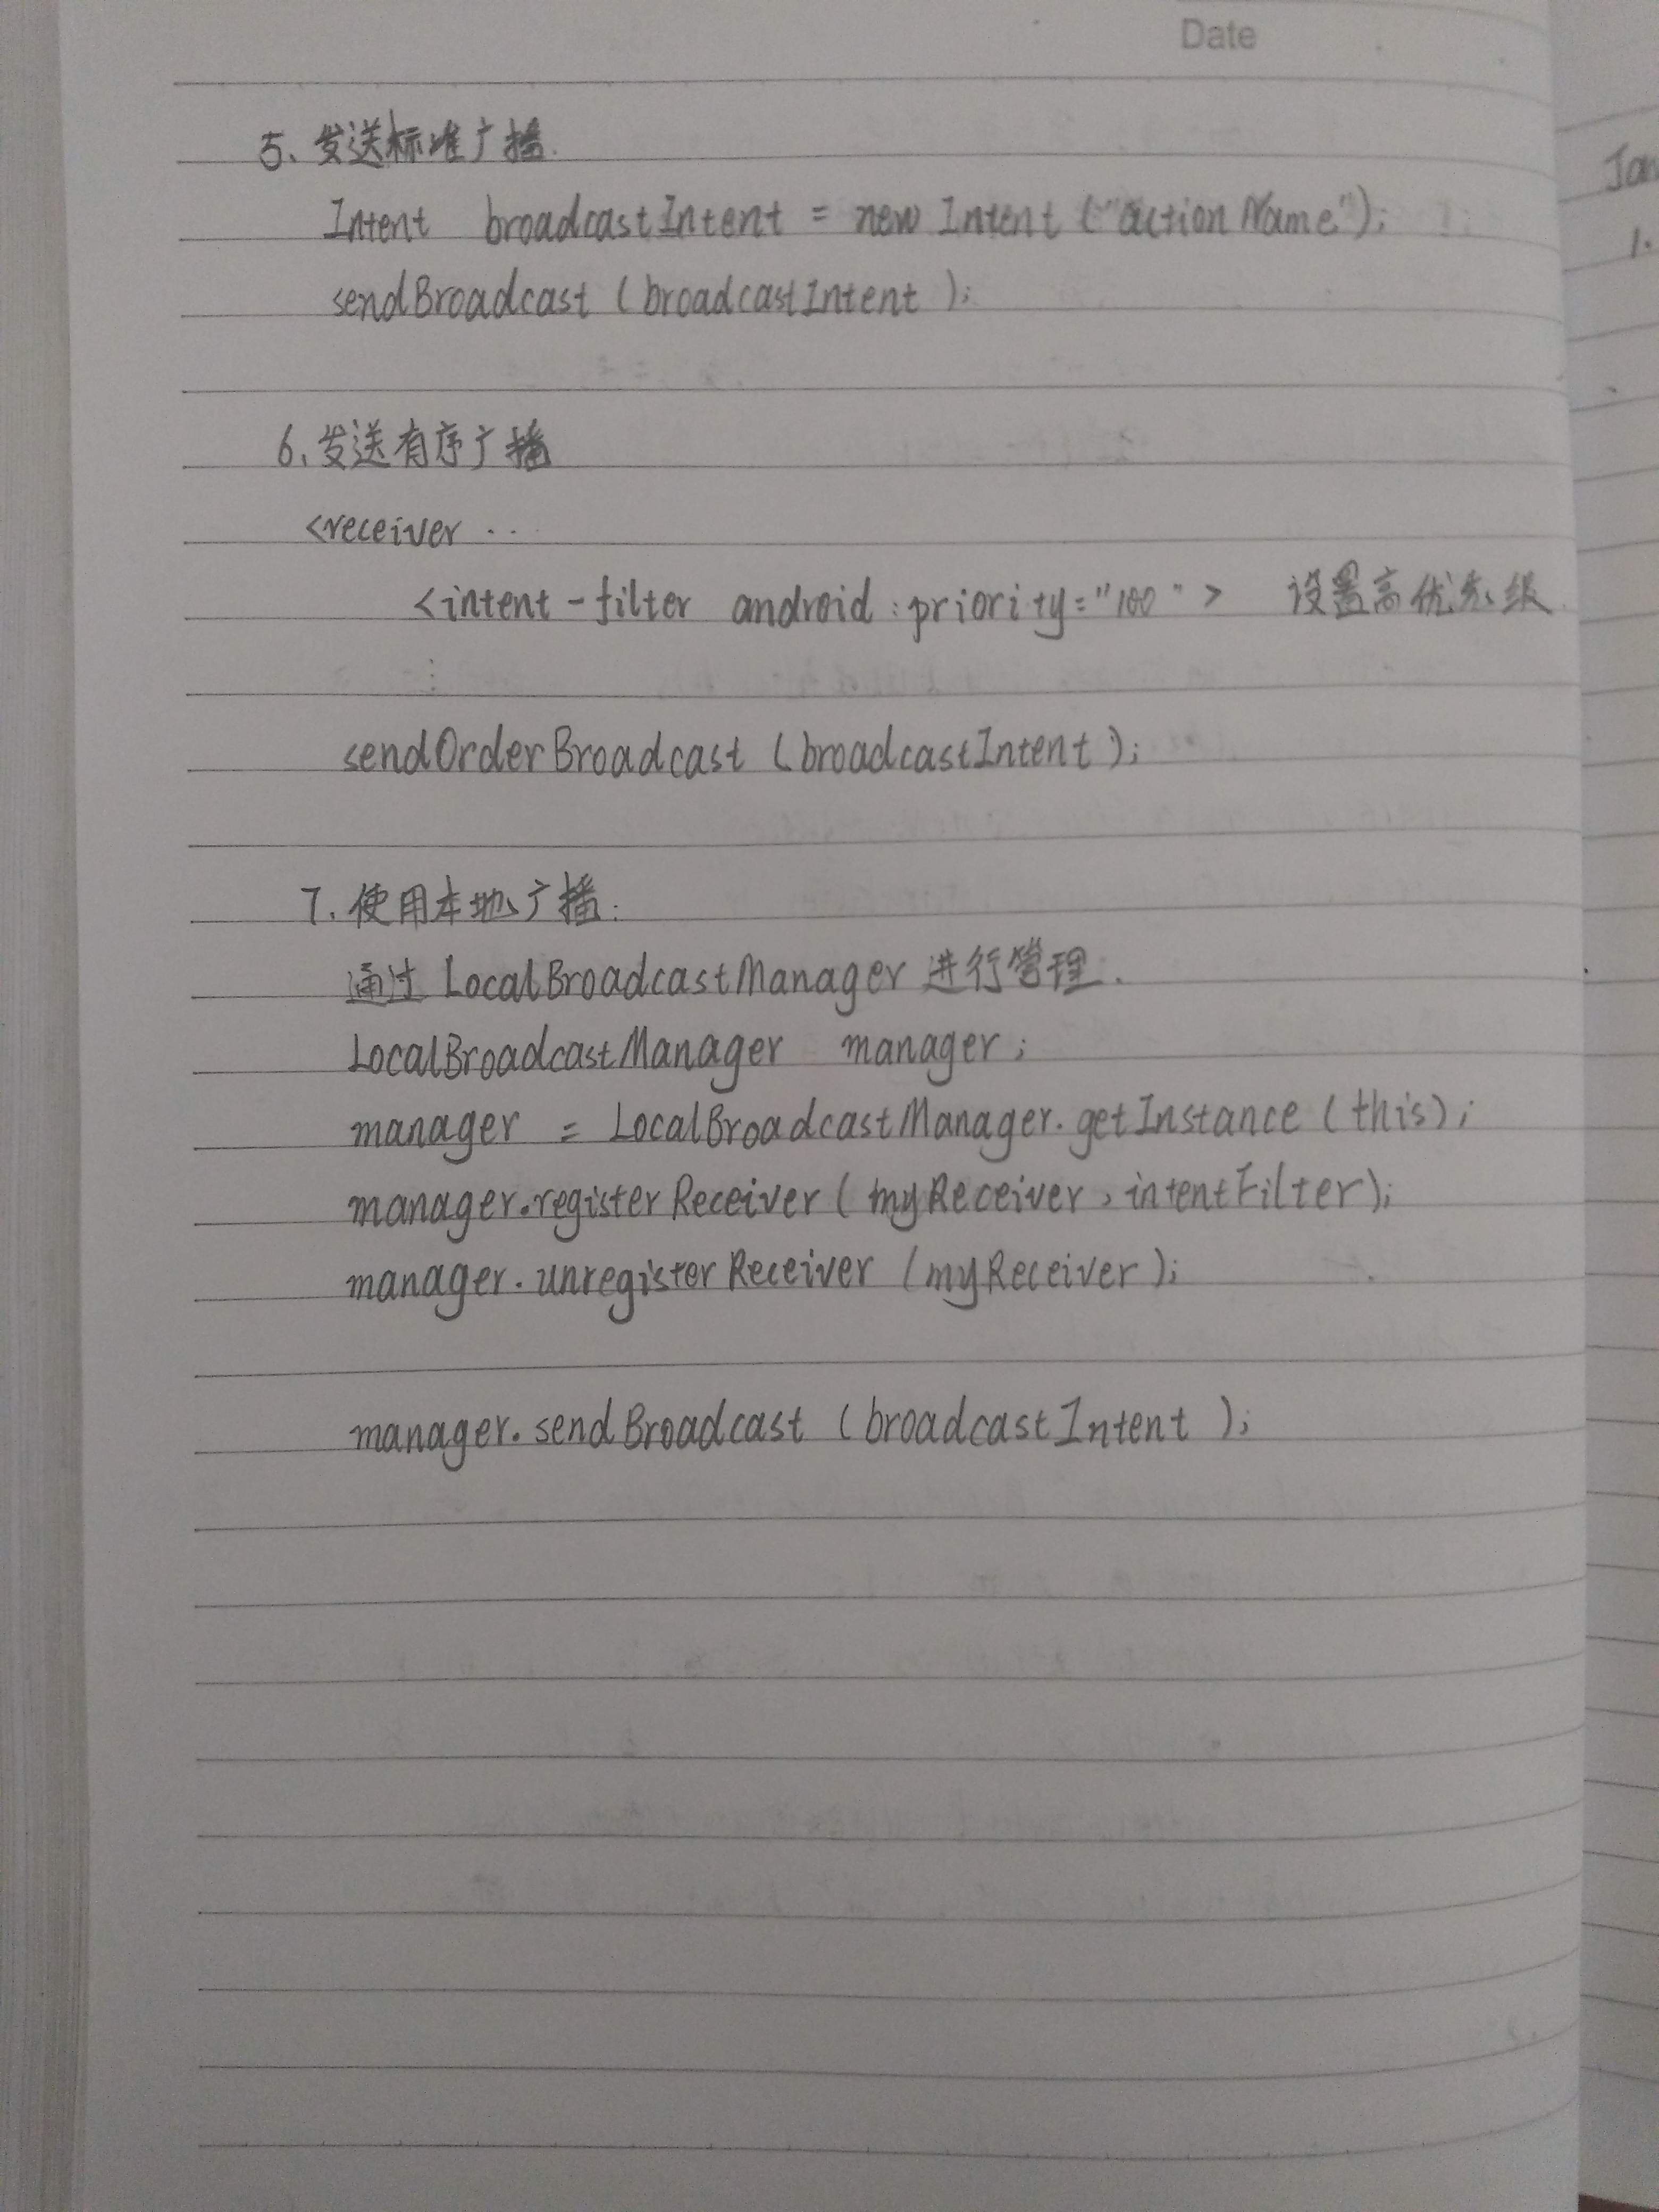 Date
5、发送标准广播.
Intent broadcastIntent = new Intent ("action Name");
sendBroadcast (broadcastIntent );
6、发送有序广播
<receiver ..
<intent-filter android:priority="100"> 设置高优先级.
sendOrderBroadcast (broadcastIntent);
7. 使用本地广播:
通过 LocalBroadcastManager 进行管理.
LocalBroadcastManager manager;
manager = LocalBroadcastManager.getInstance (this);
manager.registerReceiver (myReceiver, intentFilter);
manager.unregisterReceiver (myReceiver);
manager.sendBroadcast (broadcastIntent );
1.